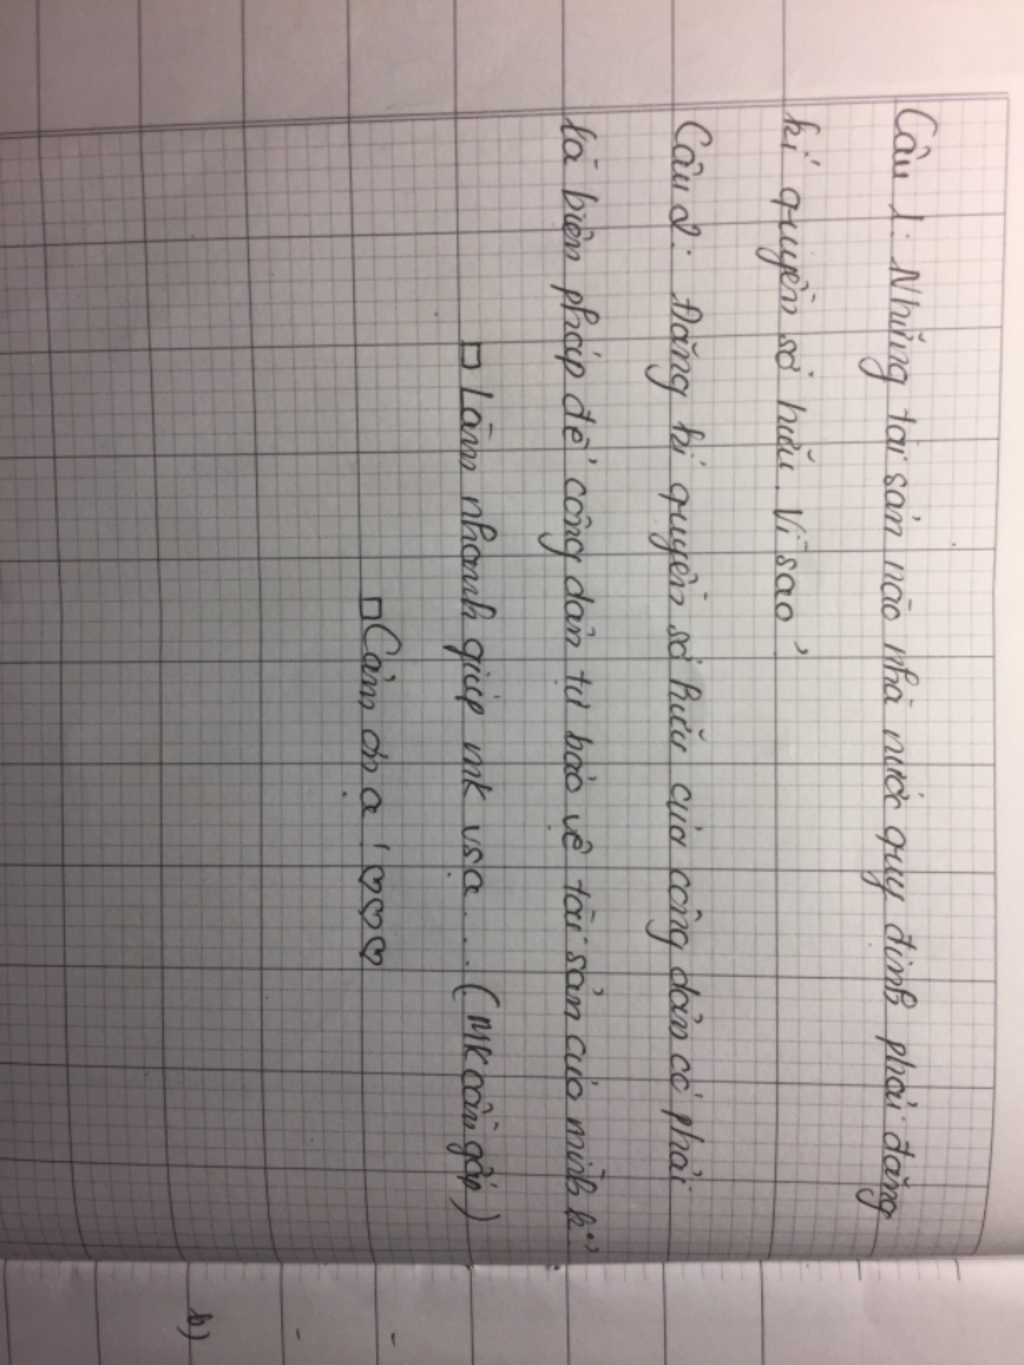 Câu 1: Những tài sản nào nhà nước quy định phải đăng
kí quyền sở hữu. Vì sao?
Câu 2: Đăng kí quyền sở hữu của công dân có phải
là biện pháp để công dân tự bảo vệ tài sản của mình k??
□ Làm nhanh giúp mk vs ạ... (MK cần gấp)
□ Cảm ơn ạ! ♡♡♡
b)